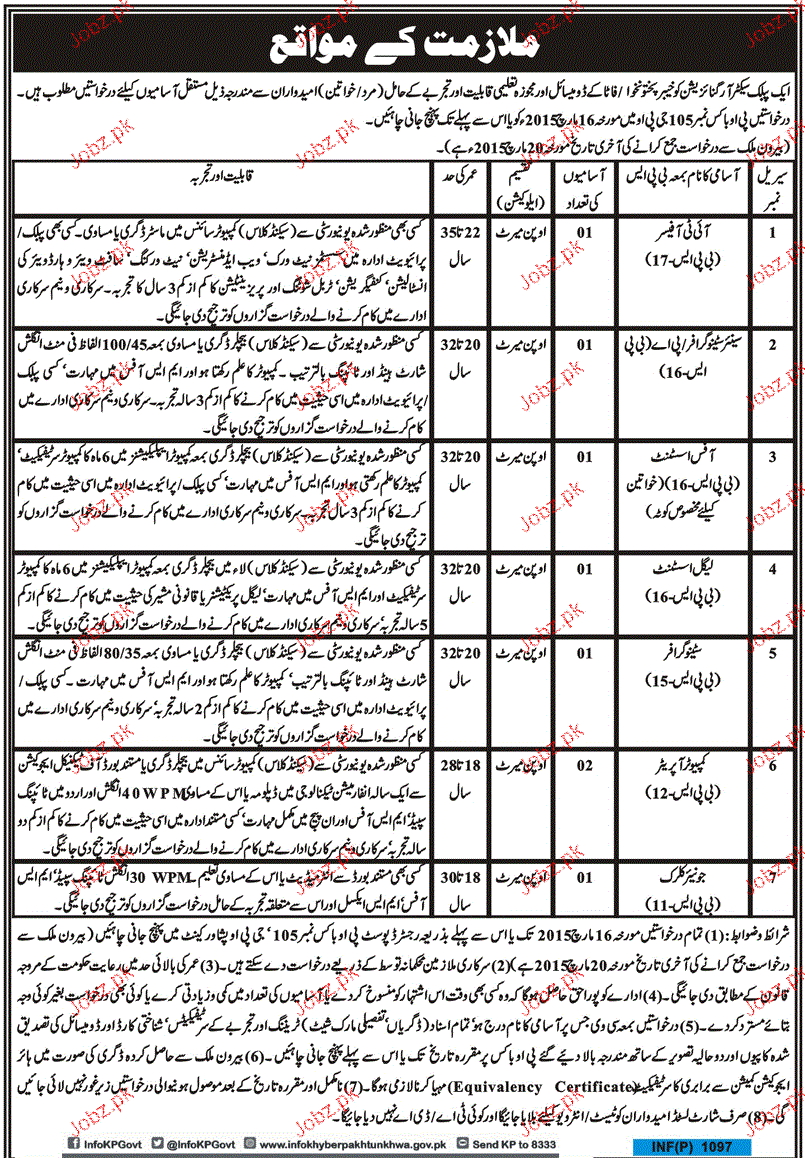 ملازمت کے مواقع
ایک پبلک سیکٹر آرگنائزیشن کو خیبر پختونخوا / فاٹا کے ڈومیسائل اور مجوزہ تعلیمی قابلیت اور تجربے کے حامل (مرد/خواتین) امیدواران سے مندرجہ ذیل مستقل آسامیوں کیلئے درخواستیں مطلوب ہیں۔
درخواستیں پی او باکس نمبر 105 جی پی او میں مورخہ 16 مارچ 2015ء کو یا اس سے پہلے تک پہنچ جانی چائیں۔
(بیرون ملک سے درخواست جمع کرانے کی آخری تاریخ مورخہ 20 مارچ 2015ء ہے)۔
سیریل نمبر
آسامی کا نام بمعہ بی پی ایس
آسامیوں کی تعداد
تقسیم (ایلوکیشن)
عمر کی حد
قابلیت اور تجربہ
1
آئی ٹی آفیسر
(بی پی ایس-17)
01
اوپن میرٹ
22 تا 35
سال
کسی بھی منظور شدہ یونیورسٹی سے (سیکنڈ کلاس) کمپیوٹر سائنس میں ماسٹر ڈگری یا مساوی۔ کسی بھی پبلک/
پرائیویٹ ادارہ میں سسٹمز نیٹ ورک، ویب ایڈمنسٹریشن، نیٹ ورکنگ، سافٹ ویئر و ہارڈ ویئر کی
انسٹالیشن، کنفیگریشن، ٹربل شوٹنگ اور پریزینٹیشن کا کم از کم 3 سال کا تجربہ۔ سرکاری و نیم سرکاری
ادارے میں کام کرنے والے درخواست گزاروں کو ترجیح دی جائیگی۔
2
سینئر سٹینوگرافر/پی اے (بی پی
ایس-16)
01
اوپن میرٹ
20 تا 32
سال
کسی منظور شدہ یونیورسٹی سے (سیکنڈ کلاس) بیچلر ڈگری یا مساوی بمعہ 100/45 الفاظ فی منٹ انگلش
شارٹ ہینڈ اور ٹائپنگ بالترتیب۔ کمپیوٹر کا علم رکھتا ہو اور ایم ایس آفس میں مہارت، کسی پبلک
/پرائیویٹ ادارہ میں اسی حیثیت میں کام کرنے کا کم از کم 3 سالہ تجربہ۔ سرکاری و نیم سرکاری ادارے میں
کام کرنے والے درخواست گزاروں کو ترجیح دی جائیگی۔
3
آفس اسسٹنٹ
(بی پی ایس-16) (خواتین
کیلئے مخصوص کوٹہ)
01
اوپن میرٹ
20 تا 32
سال
کسی منظور شدہ یونیورسٹی سے (سیکنڈ کلاس) بیچلر ڈگری بمعہ کمپیوٹر ایپلیکیشنز میں 6 ماہ کا کمپیوٹر سرٹیفکیٹ،
کمپیوٹر کا علم رکھتی ہو اور ایم ایس آفس میں مہارت، کسی پبلک/پرائیویٹ ادارہ میں اسی حیثیت میں کام
کرنے کا کم از کم 3 سال تجربہ۔ سرکاری و نیم سرکاری ادارے میں کام کرنے والے درخواست گزاروں کو
ترجیح دی جائیگی۔
4
لیگل اسسٹنٹ
(بی پی ایس-16)
01
اوپن میرٹ
20 تا 32
سال
کسی منظور شدہ یونیورسٹی سے (سیکنڈ کلاس) لاء میں بیچلر ڈگری بمعہ کمپیوٹر ایپلیکیشنز میں 6 ماہ کا کمپیوٹر
سرٹیفکیٹ اور ایم ایس آفس میں مہارت، لیگل پریکٹیشنر یا قانونی مشیر کی حیثیت میں کام کرنے کا کم از کم
5 سالہ تجربہ، سرکاری و نیم سرکاری ادارے میں کام کرنے والے درخواست گزاروں کو ترجیح دی جائیگی۔
5
سٹینوگرافر
(بی پی ایس-15)
01
اوپن میرٹ
20 تا 32
سال
کسی منظور شدہ یونیورسٹی سے (سیکنڈ کلاس) بیچلر ڈگری یا مساوی بمعہ 80/35 الفاظ فی منٹ انگلش
شارٹ ہینڈ اور ٹائپنگ بالترتیب، کمپیوٹر کا علم رکھتا ہو اور ایم ایس آفس میں مہارت۔ کسی پبلک/
پرائیویٹ ادارہ میں اسی حیثیت میں کام کرنے کا کم از کم 2 سالہ تجربہ، سرکاری و نیم سرکاری ادارے میں
کام کرنے والے درخواست گزاروں کو ترجیح دی جائیگی۔
6
کمپیوٹر آپریٹر
(بی پی ایس-12)
02
اوپن میرٹ
18 تا 28
سال
کسی منظور شدہ یونیورسٹی سے (سیکنڈ کلاس) کمپیوٹر سائنس میں بیچلر ڈگری یا مستند بورڈ آف ٹیکنیکل ایجوکیشن
سے ایک سالہ انفارمیشن ٹیکنالوجی میں ڈپلومہ یا اس کے مساوی 40WPM انگلش اور اردو میں ٹائپنگ
سپیڈ، ایم ایس آفس اور ان پیج میں مکمل مہارت، کسی مستند ادارہ میں اسی حیثیت میں کام کرنے کا کم از کم دو
سالہ تجربہ، سرکاری و نیم سرکاری ادارے میں کام کرنے والے درخواست گزاروں کو ترجیح دی جائیگی۔
7
جونیئر کلرک
(بی پی ایس-11)
01
اوپن میرٹ
18 تا 30
سال
کسی بھی مستند بورڈ سے انٹرمیڈیٹ یا اس کے مساوی تعلیم۔ 30 WPM انگلش ٹائپنگ سپیڈ، ایم ایس
آفس، ایم ایس ایکسل اور اس سے متعلقہ تجربہ کے حامل درخواست گزاروں کو ترجیح دی جائیگی۔
شرائط و ضوابط: (1) تمام درخواستیں مورخہ 16 مارچ 2015 تک یا اس سے پہلے بذریعہ رجسٹرڈ پوسٹ پی او باکس نمبر 105، جی پی او پشاور کینٹ میں پہنچ جانی چائیں (بیرون ملک سے
درخواست جمع کرانے کی آخری تاریخ مورخہ 20 مارچ 2015 ہے) (2) سرکاری ملازمین محکمانہ توسط کے ذریعے درخواست دے سکتے ہیں۔ (3) عمر کی بالائی حد میں رعایت حکومت کے مروجہ
قانون کے مطابق دی جائیگی۔ (4) ادارے کو پورا حق حاصل ہوگا کہ وہ کسی بھی وقت اس اشتہار کو منسوخ کردے یا آسامیوں کی تعداد میں کمی و زیادتی کرے یا کوئی بھی درخواست بغیر کوئی وجہ
بتائے مسترد کردے۔ (5) درخواستیں بمعہ سی وی جس پر آسامی کا نام درج ہو، تمام اسناد (ڈگریاں، تفصیلی مارک شیٹ) ٹریننگ اور تجربے کے سرٹیفکیٹس، شناختی کارڈ اور ڈومیسائل کی تصدیق
شدہ کاپیوں اور دو حالیہ تصویر کے ساتھ مندرجہ بالا دیئے گئے پی او باکس پر مقررہ تاریخ تک یا اس سے پہلے پہنچ جانی چائیں۔ (6) بیرون ملک سے حاصل کردہ ڈگری کی صورت میں ہائر
ایجوکیشن کمیشن سے برابری کا سرٹیفکیٹ (Equivalency Certificate) مہیا کرنا لازمی ہوگا۔ (7) نامکمل اور مقررہ تاریخ کے بعد موصول ہونیوالی درخواستیں زیر غور نہیں لائی جائیں
گی۔ (8) صرف شارٹ لسٹڈ امیدواران کو ٹیسٹ/انٹرویو کیلئے بلایا جائیگا اور کوئی ٹی اے/ڈی اے نہیں دیا جائیگا۔
InfoKPGovt @InfoKPGovt www.infokhyberpakhtunkhwa.gov.pk Send KP to 8333
INF(P) 1097
Jobz.pk